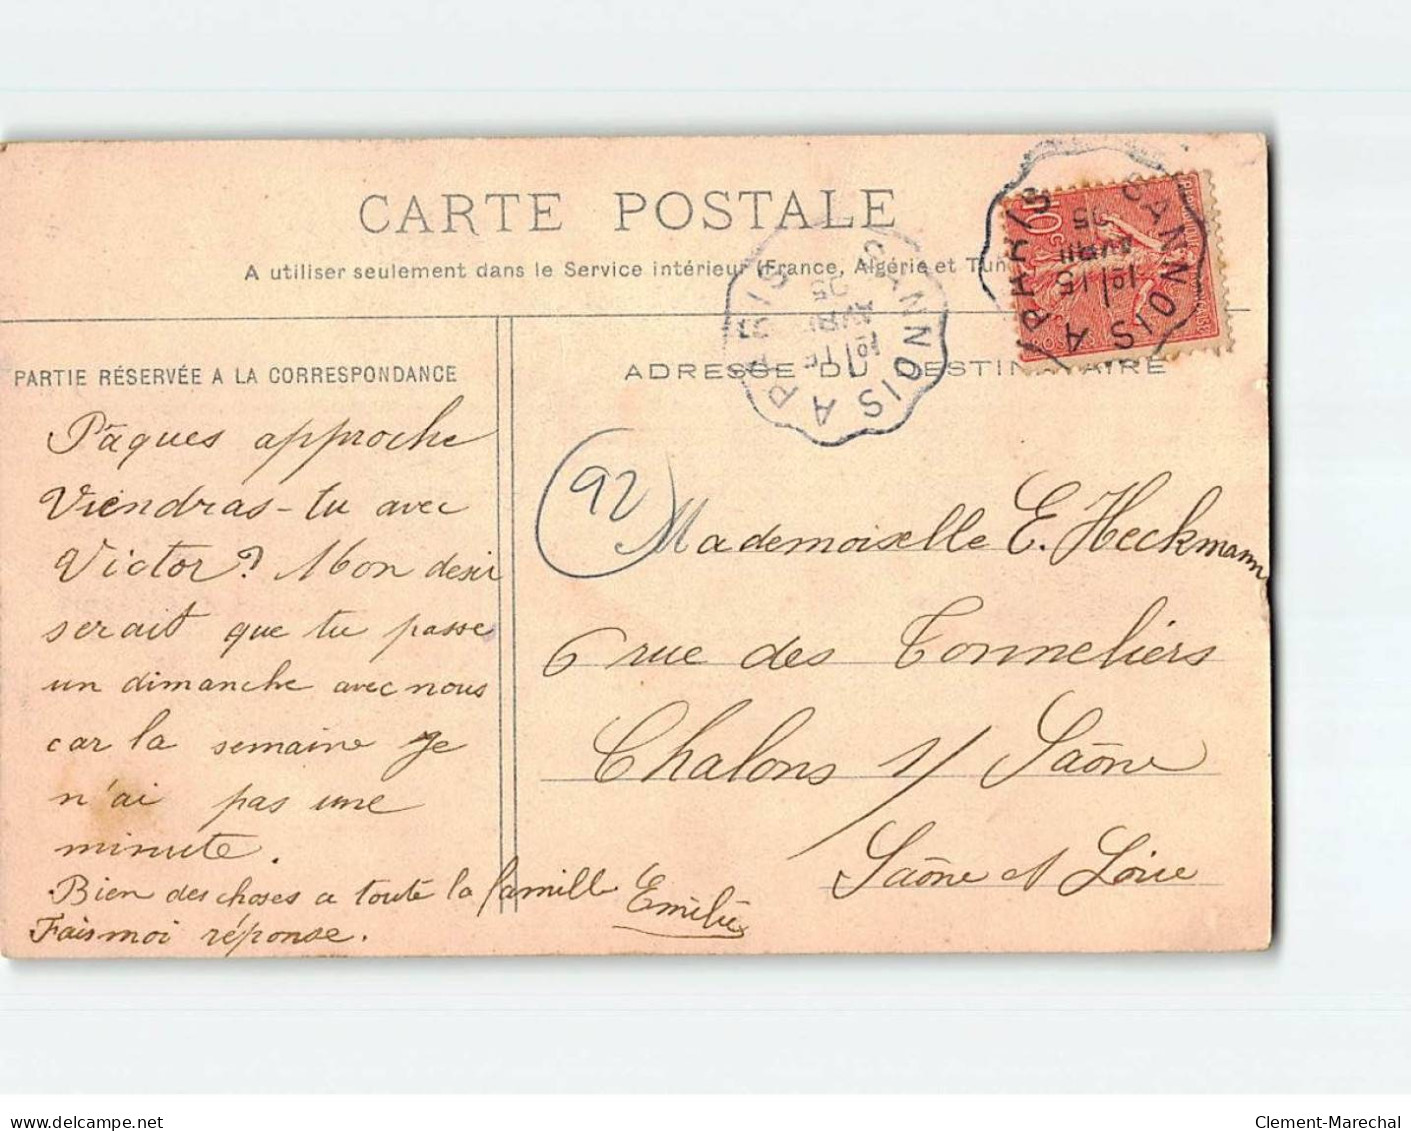 CARTE POSTALE
A utiliser seulement dans le Service intérieur (France, Algérie et Tun
PARTIE RÉSERVÉE A LA CORRESPONDANCE
ADRESSE DU DESTINATAIRE
SANNOIS A PARIS
1º/15
AVRIL
05
SANNOIS A PARIS
1º/15
AVRIL
05
Pâques approche
Viendras-tu avec
Victor? Mon desir
serait que tu passe
un dimanche avec nous
car la semaine je
n'ai pas une
minute.
Bien des choses a toute la famille Emilie
Fais moi réponse.
92
Mademoiselle E. Heckmann
6 rue des Tonneliers
Chalons s/ Saône
Saône et Loire
delcampe.net
Clement-Marechal